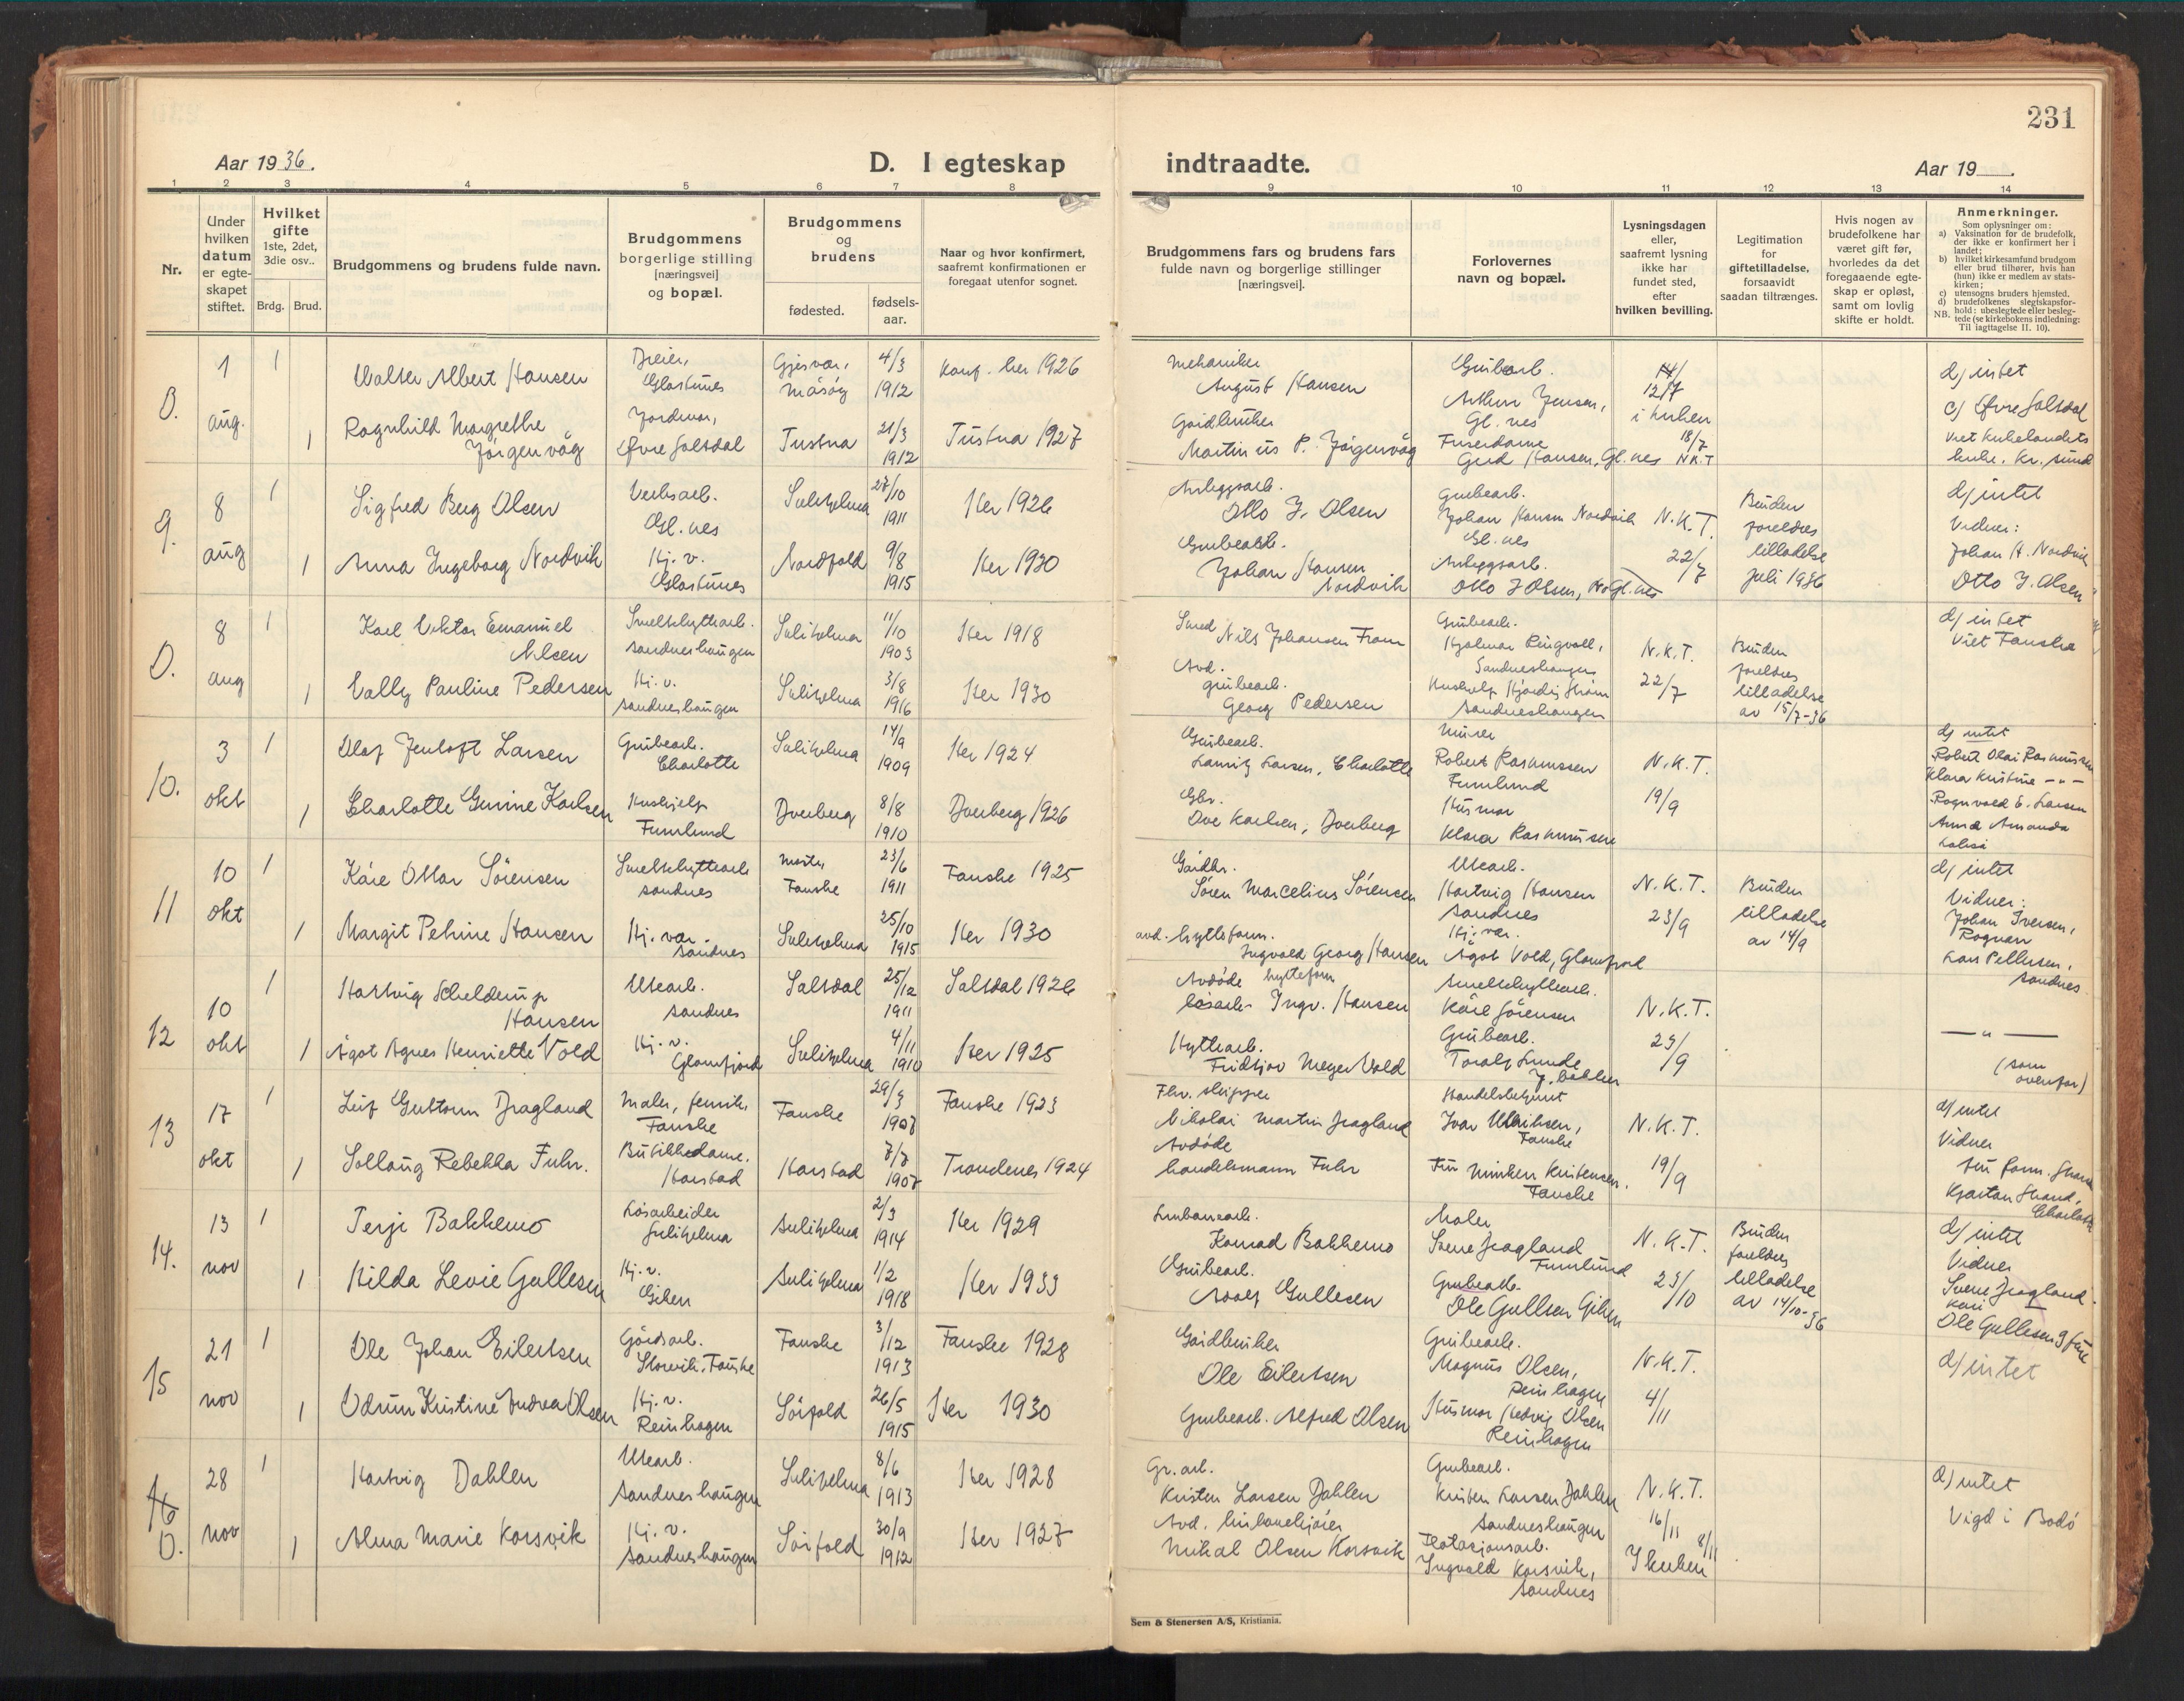 231
Aar 1936.
D. I egteskap indtraadte.
Aar 19
1 2 3 4 5 6 7 8 9 10 11 12 13 14
Nr.
Under hvilken datum er egteskapet stiftet.
Hvilket gifte
1ste, 2det, 3die osv..
Brdg. Brud.
Brudgommens og brudens fulde navn.
Brudgommens borgerlige stilling [næringsvei] og bopæl.
Brudgommens og brudens
fødested.
fødsels-aar.
Naar og hvor konfirmert, saafremt konfirmationen er foregaat utenfor sognet.
Brudgommens fars og brudens fars fulde navn og borgerlige stillinger [næringsvei].
Forlovernes navn og bopæl.
Lysningsdagen eller, saafremt lysning ikke har fundet sted, efter hvilken bevilling.
Legitimation for giftetilladelse, forsaavidt saadan tiltrænges.
Hvis nogen av brudefolkene har været gift før, hvorledes da det foregaaende egteskap er opløst, samt om lovlig skifte er holdt.
Anmerkninger.
Som oplysninger om:
a) Vaksination for de brudefolk, der ikke er konfirmert her i landet;
b) hvilket kirkesamfund brudgom eller brud tilhører, hvis han (hun) ikke er medlem av statskirken;
c) utensogns bruders hjemsted.
d) brudefolkenes slegtskapsforhold: ubeslegtede eller beslegtede (se kirkebokens indledning: Til iagttagelse II. 10).
NB.
1 aug.
Walter Albert Hansen
Gjesvær, Måsøy
4/3 1912
Konf. her 1926
Mekaniker
August Hansen
Grubearb.
Arthur Jensen, Gl.nes
12/7 i kirken
d) intet
Ragnhild Margrethe Jörgenvåg
Jordmor, Øvre Saltdal
Tustna
21/3 1912
Tustna 1927
Gardbruker
Martinus P. Jörgenvåg
Gerd Hansen, Gl.nes
18/7 N.K.T
c) Øvre Saltdal
9.
8 aug
Sigfred Berg Olsen
Verksarb. Gl.nes
Sulitjelma
27/10 1911
Her 1926
Anleggsarb.
Otto J. Olsen
Grubearb.
Johan Hansen Nordvik
Gl.nes
N.K.T. 22/7
Bruden foreldres tilladelse juli 1936
d) intet
Vidner:
Johan H. Nordvik
Otto J. Olsen
Anna Ingeborg Nordvik
Hj. v.
Nordfold
9/8 1915
Her 1930
Grubearb.
Johan Hansen Nordvik
Anleggsarb.
Otto J Olsen, Gl.nes
0.
8 aug
Karl Viktor Emanuel Nilsen
Smeltehyttearb. Sandneshaugen
Sulitjelma
11/10 1903
Her 1918
Smed
Nils Johansen Fram
Grubearb.
Hjalmar Ringvoll, Sandneshaugen
N.K.T. 22/7
Bruden foreldres tilladelse av 15/7-36
d) intet
Viet Fauske
Vally Pauline Pedersen
Hj. v. Sandneshaugen
Sulitjelma
3/8 1916
Her 1930
Avd. grubearb.
Georg Pedersen
Sandneshaugen
10.
3 okt
Olaf Jentoft Larsen
Grubearb. Charlotte
Sulitjelma
14/9 1909
Her 1924
Grubearb.
Lauritz Larsen, Charlotte
Murer
Robert Rasmussen
Furulund
N.K.T. 19/9
d) intet
Robert Olai Rasmussen
Klara Kristine -"-
Ragnvald E. Larsen
Anna Amanda
Charlotte Gurine Karlsen
Hushjelp Furulund
Dverberg
8/8 1910
Dverberg 1926
Gbr.
Ove Karlsen, Dverberg
Husmor
Klara Rasmussen
11
10 okt
Kåre Ottar Sörensen
Smeltehyttearb. Sandnes
Fauske
23/6 1911
Fauske 1925
Gårdbr.
Sören Marcelius Sörensen
Utearb.
Hartvig Hansen
Sandnes
N.K.T. 23/9
Bruden tilladelse av 14/9
d) intet
Vidner:
Johan Iversen, Rognan
Lars Pettersen, Sandnes
Margit Petrine Hansen
Hj. vær. Sandnes
Sulitjelma
25/10 1915
Her 1930
avd. hytteform.
Ingvald Georg Hansen
Hj. vær.
Ågot Vold, Glomfjord
12
10 okt
Hartvig Schelderup Hansen
Utearb. Sandnes
Saltdal
25/12 1911
Saltdal 1926
Avdöde hytteform
Ingv. Hansen
Smeltehyttearb.
Kåre Sörensen
N.K.T. 23/9
-"-
(som ovenfor)
Ågot Agnes Henriette Vold
Hj. v. Glomfjord
Sulitjelma
4/11 1910
Her 1925
Hyttearb.
Fridtjov Meyer Vold
Grubearb.
Toralf Lunde
J. bakken
13
17 okt
Leif Guttorm Dragland
Maler, Fauske
Fauske
29/3 1907
Fauske 1923
Fhv. skipper
Nikolai Martin Dragland
Handelsbetjent
Ivar Ulriksen, Fauske
N.K.T. 19/9
d) intet
Vidner
Sollaug Rebekka Fuhr.
Butikkdame. Harstad
Harstad
7/7 1907
Trondenes 1924
Avdöde
handelsmann Fuhr
Fru Minken Kristensen. Fauske
14.
13 nov
Terje Bakkemo
Løsarbeider Sulitjelma
Sulitjelma
2/3 1914
Her 1929
Konrad Bakkemo
Maler
Sverre Dragland
Furulund
N.K.T. 23/10
Bruden foreldres tilladelse av 14/10-36
d) intet
Vidner
Sverre Dragland.
Hilda Levie Gullesen
Hj. v. Giken
Sulitjelma
1/2 1918
Her 1933
Grubearb.
Adolf Gullesen
Grubearb.
Ole Gullsen Giken
15
21 nov
Ole Johan Eilertsen
Gårdsarb. Storvik. Fauske
Fauske
3/12 1913
Fauske 1928
Gårdbruker
Ole Eilertsen
Grubearb.
Magnus Olsen, Reinhagen
N.K.T. 4/11
d) intet
Odrun Kristine Andrea Olsen
Hj. v. Reinhagen
Sörfold
26/5 1915
Her 1930
Grubearb. Alfred Olsen
Husmor Hedvig Olsen
Reinhagen
16
0.
28 nov
Hartvig Dahlen
Utearb. Sandneshaugen
Sulitjelma
8/6 1913
Her 1928
Gr. arb.
Kristen Larsen Dahlen
Grubearb.
Kristen Larsen Dahlen
Sandneshaugen
N.K.T. 16/11
d) intet
Vigd i Bodö
Alma Marie Korsvik
Hj. v. Sandneshaugen
Sörfold
30/9 1912
Her 1927
Mikal Olsen Korsvik
Flotasjonsarb.
Ingvald Korsvik, Sandnes
8/11
I kirken
Sem & Stenersen A/S, Kristiania.